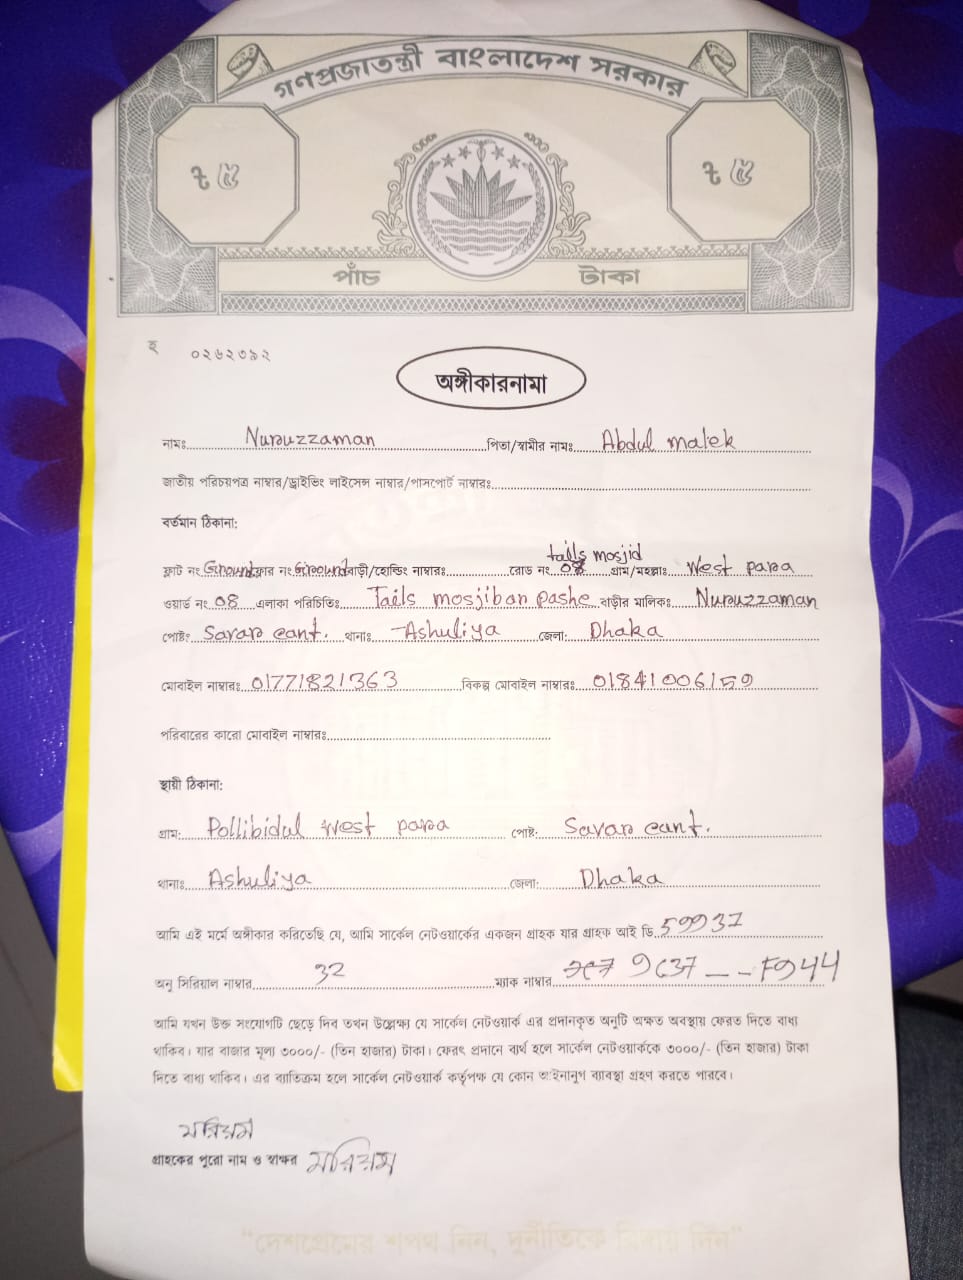 গণপ্রজাতন্ত্রী বাংলাদেশ সরকার
৳ ৫ ৳ ৫
পাঁচ টাকা
হ ০২৬২৩৯২
অঙ্গীকারনামা
নামঃ Nuruzzaman পিতা/স্বামীর নামঃ Abdul malek
জাতীয় পরিচয়পত্র নাম্বার/ড্রাইভিং লাইসেন্স নাম্বার/পাসপোর্ট নাম্বারঃ
বর্তমান ঠিকানা:
tails mosjid
ফ্লাট নং Ground ফ্লোর নং Ground বাড়ী/হোল্ডিং নাম্বারঃ রোড নং 08 গ্রাম/মহল্লাঃ West para
ওয়ার্ড নং 08 এলাকা পরিচিতিঃ Tails mosjiban pashe বাড়ীর মালিকঃ Nuruzzaman
পোষ্ট: Savar cant. থানাঃ Ashuliya জেলা: Dhaka
মোবাইল নাম্বারঃ 01771821363 বিকল্প মোবাইল নাম্বারঃ 01841006159
পরিবারের কারো মোবাইল নাম্বারঃ
স্থায়ী ঠিকানা:
গ্রাম: Pollibidut west para পোষ্ট: Savar cant.
থানাঃ Ashuliya জেলা: Dhaka
আমি এই মর্মে অঙ্গীকার করিতেছি যে, আমি সার্কেল নেটওয়ার্কের একজন গ্রাহক যার গ্রাহক আই ডি.
অনু সিরিয়াল নাম্বার 32 ম্যাক নাম্বার
আমি যখন উক্ত সংযোগটি ছেড়ে দিব তখন উল্লেক্ষ্য যে সার্কেল নেটওয়ার্ক এর প্রদানকৃত অনুটি অক্ষত অবস্থায় ফেরত দিতে বাধ্য
থাকিব। যার বাজার মূল্য ৩০০০/- (তিন হাজার) টাকা। ফেরৎ প্রদানে ব্যর্থ হলে সার্কেল নেটওয়ার্ককে ৩০০০/- (তিন হাজার) টাকা
দিতে বাধ্য থাকিব। এর ব্যাতিক্রম হলে সার্কেল নেটওয়ার্ক কর্তৃপক্ষ যে কোন আইনানুগ ব্যাবস্থা গ্রহণ করতে পারবে।
মরিয়ম
গ্রাহকের পুরো নাম ও স্বাক্ষর মরিয়ম
"দেশপ্রেমের শপথ নিন, দুর্নীতিকে বিদায় দিন"